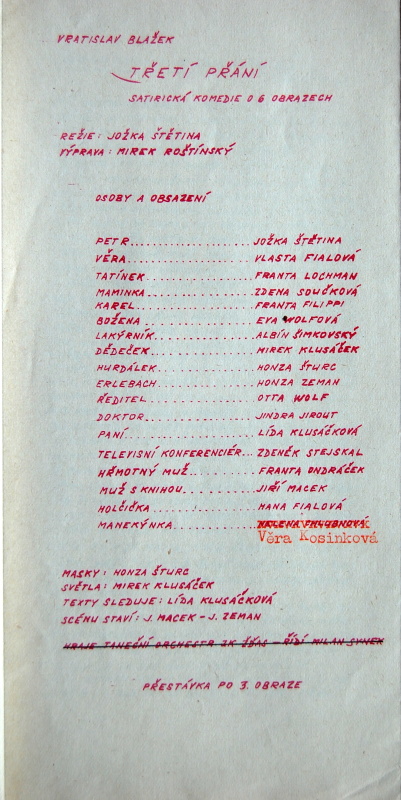 VRATISLAV BLAŽEK
TŘETÍ PŘÁNÍ
SATIRICKÁ KOMEDIE O 6 OBRAZECH
REŽIE: JOŽKA ŠTĚTINA
VÝPRAVA: MIREK ROŠTÍNSKÝ
OSOBY A OBSAZENÍ
PETR.................... JOŽKA ŠTĚTINA
VĚRA.................... VLASTA FIALOVÁ
TATÍNEK................ FRANTA LOCHMAN
MAMINKA................ ZDENA SOUČKOVÁ
KAREL.................. FRANTA FILIPPI
BOŽENA................. EVA WOLFOVÁ
LAKÝRNÍK............... ALBÍN ŠIMKOVSKÝ
DĚDEČEK................ MIREK KLUSÁČEK
HURDÁLEK............... HONZA ŠTURC
ERLEBACH............... HONZA ZEMAN
ŘEDITEL................ OTTA WOLF
DOKTOR................. JINDRA JIROUT
PANÍ................... LÍDA KLUSÁČKOVÁ
TELEVISNÍ KONFERENCIÉR... ZDENĚK STEJSKAL
HŘMOTNÝ MUŽ............ FRANTA ONDRÁČEK
MUŽ S KNIHOU........... JIŘÍ MACEK
HOLČIČKA............... HANA FIALOVÁ
MANEKÝNKA.............. HALENA
Věra Kosinková
MASKY: HONZA ŠTURC
SVĚTLA: MIREK KLUSÁČEK
TEXTY SLEDUJE: LÍDA KLUSÁČKOVÁ
SCÉNU STAVÍ: J. MACEK – J. ZEMAN
HRAJE TANEČNÍ ORCHESTR ZK ŽĎAS – ŘÍDÍ MILAN SYNEK
PŘESTÁVKA PO 3. OBRAZE